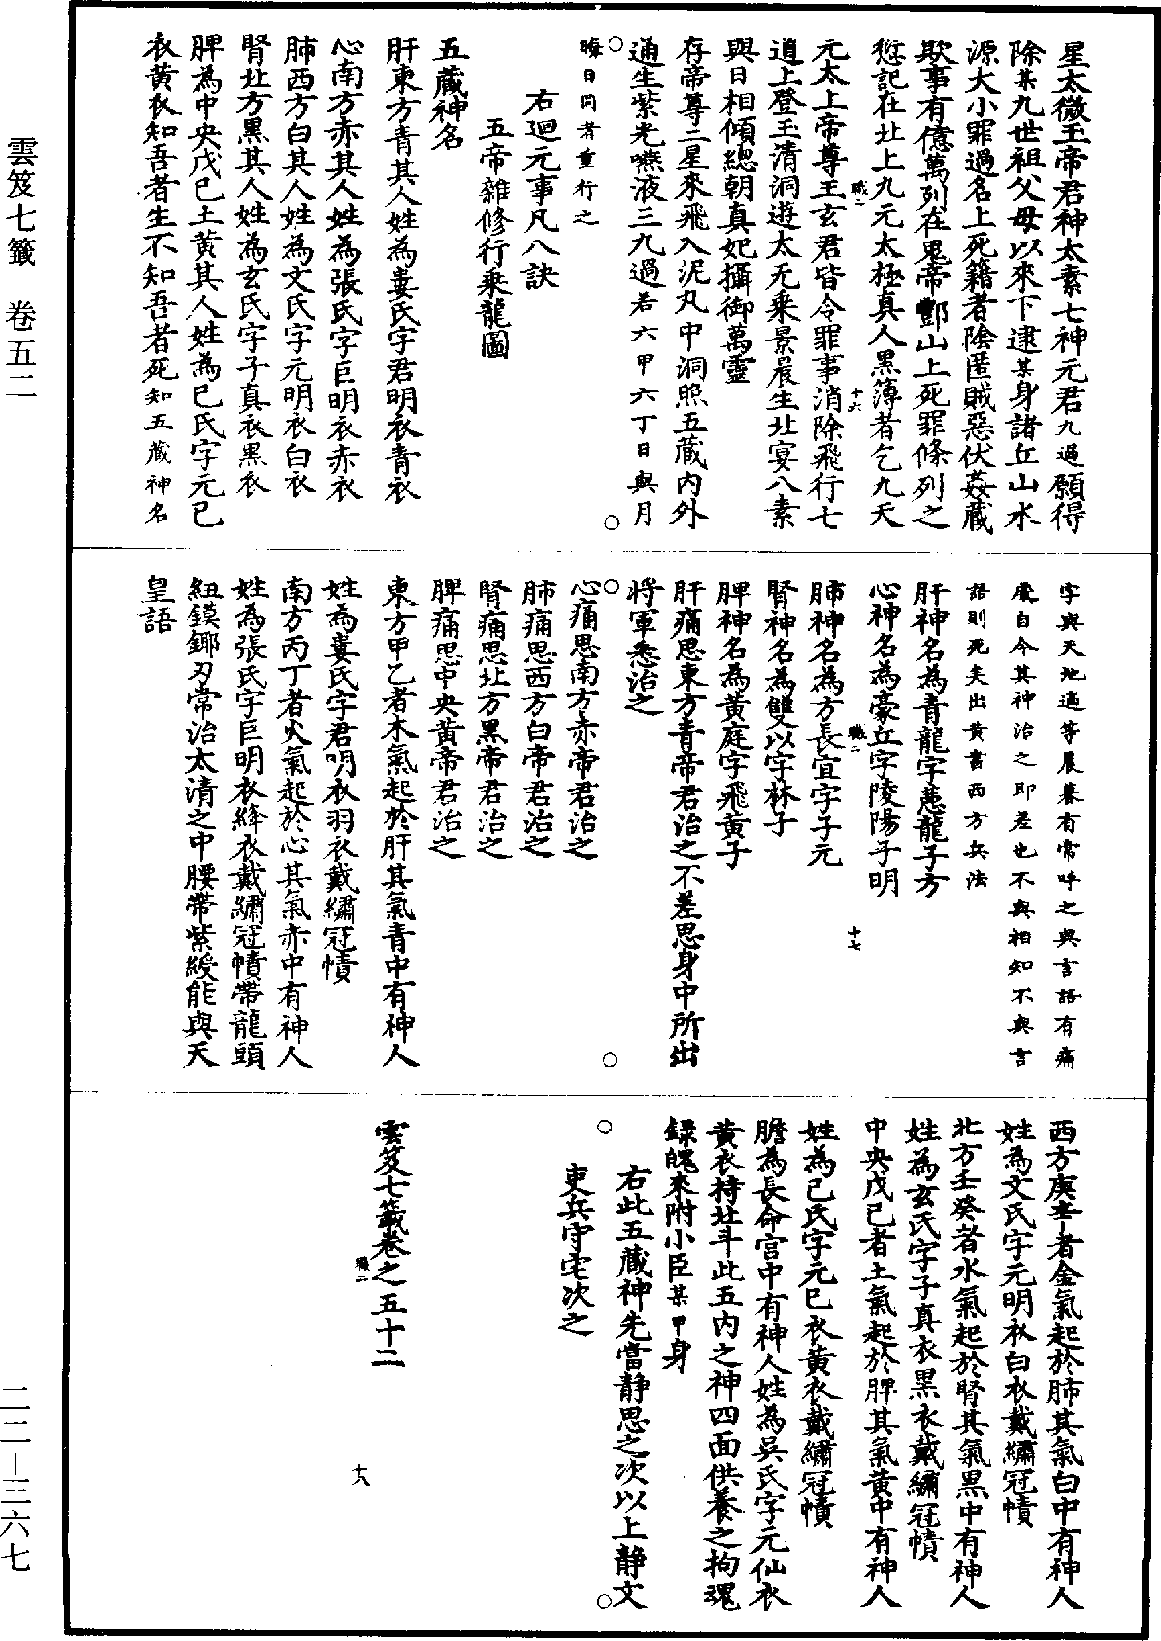 雲笈七籤　卷五二
星太微玉帝君神太素七神元君九過願得
除某九世祖父母以來下逮某身諸丘山水
源大小罪過名上死籍者陰匿賊惡伏姦藏
欺事有億萬列在鬼帝酆山上死罪條列之
愆記在北上九元太極真人黑簿者乞九天
職二　十六
元太上帝尊王玄君皆令罪事消除飛行七
道上登玉清洞遊太无乘景晨生北宴八素
與日相傾總朝真妃攝御萬靈
存帝尊二星來飛入泥丸中洞照五藏內外
通生紫光嚥液三九過若六甲六丁日與月
晦日同者重行之
右迴元事凡八訣
五帝雜修行乘龍圖
五藏神名
肝東方青其人姓為婁氏字君明衣青衣
心南方赤其人姓為張氏字巨明衣赤衣
肺西方白其人姓為文氏字元明衣白衣
腎北方黑其人姓為玄氏字子真衣黑衣
脾為中央戊巳土黃其人姓為巳氏字元巳
衣黃衣知吾者生不知吾者死知五藏神名
字與天地適等晨暮有常呼之與言語有痛
處自令其神治之即差也不與相知不與言
語則死矣出黃書西方兵法
肝神名為青龍字蔥龍子方
心神名為豪丘字陵陽子明
職二　十七
肺神名為方長宜字子元
腎神名為雙以字林子
脾神名為黃庭字飛黃子
肝痛思東方青帝君治之不差思身中所出
將軍悉治之
心痛思南方赤帝君治之
肺痛思西方白帝君治之
腎痛思北方黑帝君治之
脾痛思中央黃帝君治之
東方甲乙者木氣起於肝其氣青中有神人
姓為婁氏字君明衣羽衣戴繡冠幘
南方丙丁者火氣起於心其氣赤中有神人
姓為張氏字巨明衣絳衣戴繡冠幘帶龍頭
紐鏌鋣刃常治太清之中腰帶紫綬能與天
皇語
西方庚辛者金氣起於肺其氣白中有神人
姓為文氏字元明衣白衣戴繡冠幘
北方壬癸者水氣起於腎其氣黑中有神人
姓為玄氏字子真衣黑衣戴繡冠幘
中央戊巳者土氣起於脾其氣黃中有神人
姓為巳氏字元巳衣黃衣戴繡冠幘
膽為長命宮中有神人姓為吳氏字元仙衣
黃衣持北斗此五內之神四面供養之拘魂
錄魄來附小臣某甲身
右此五藏神先當靜思之次以上靜文
吏兵守宅次之
雲笈七籤卷之五十二
職二　十八
二二—三六七